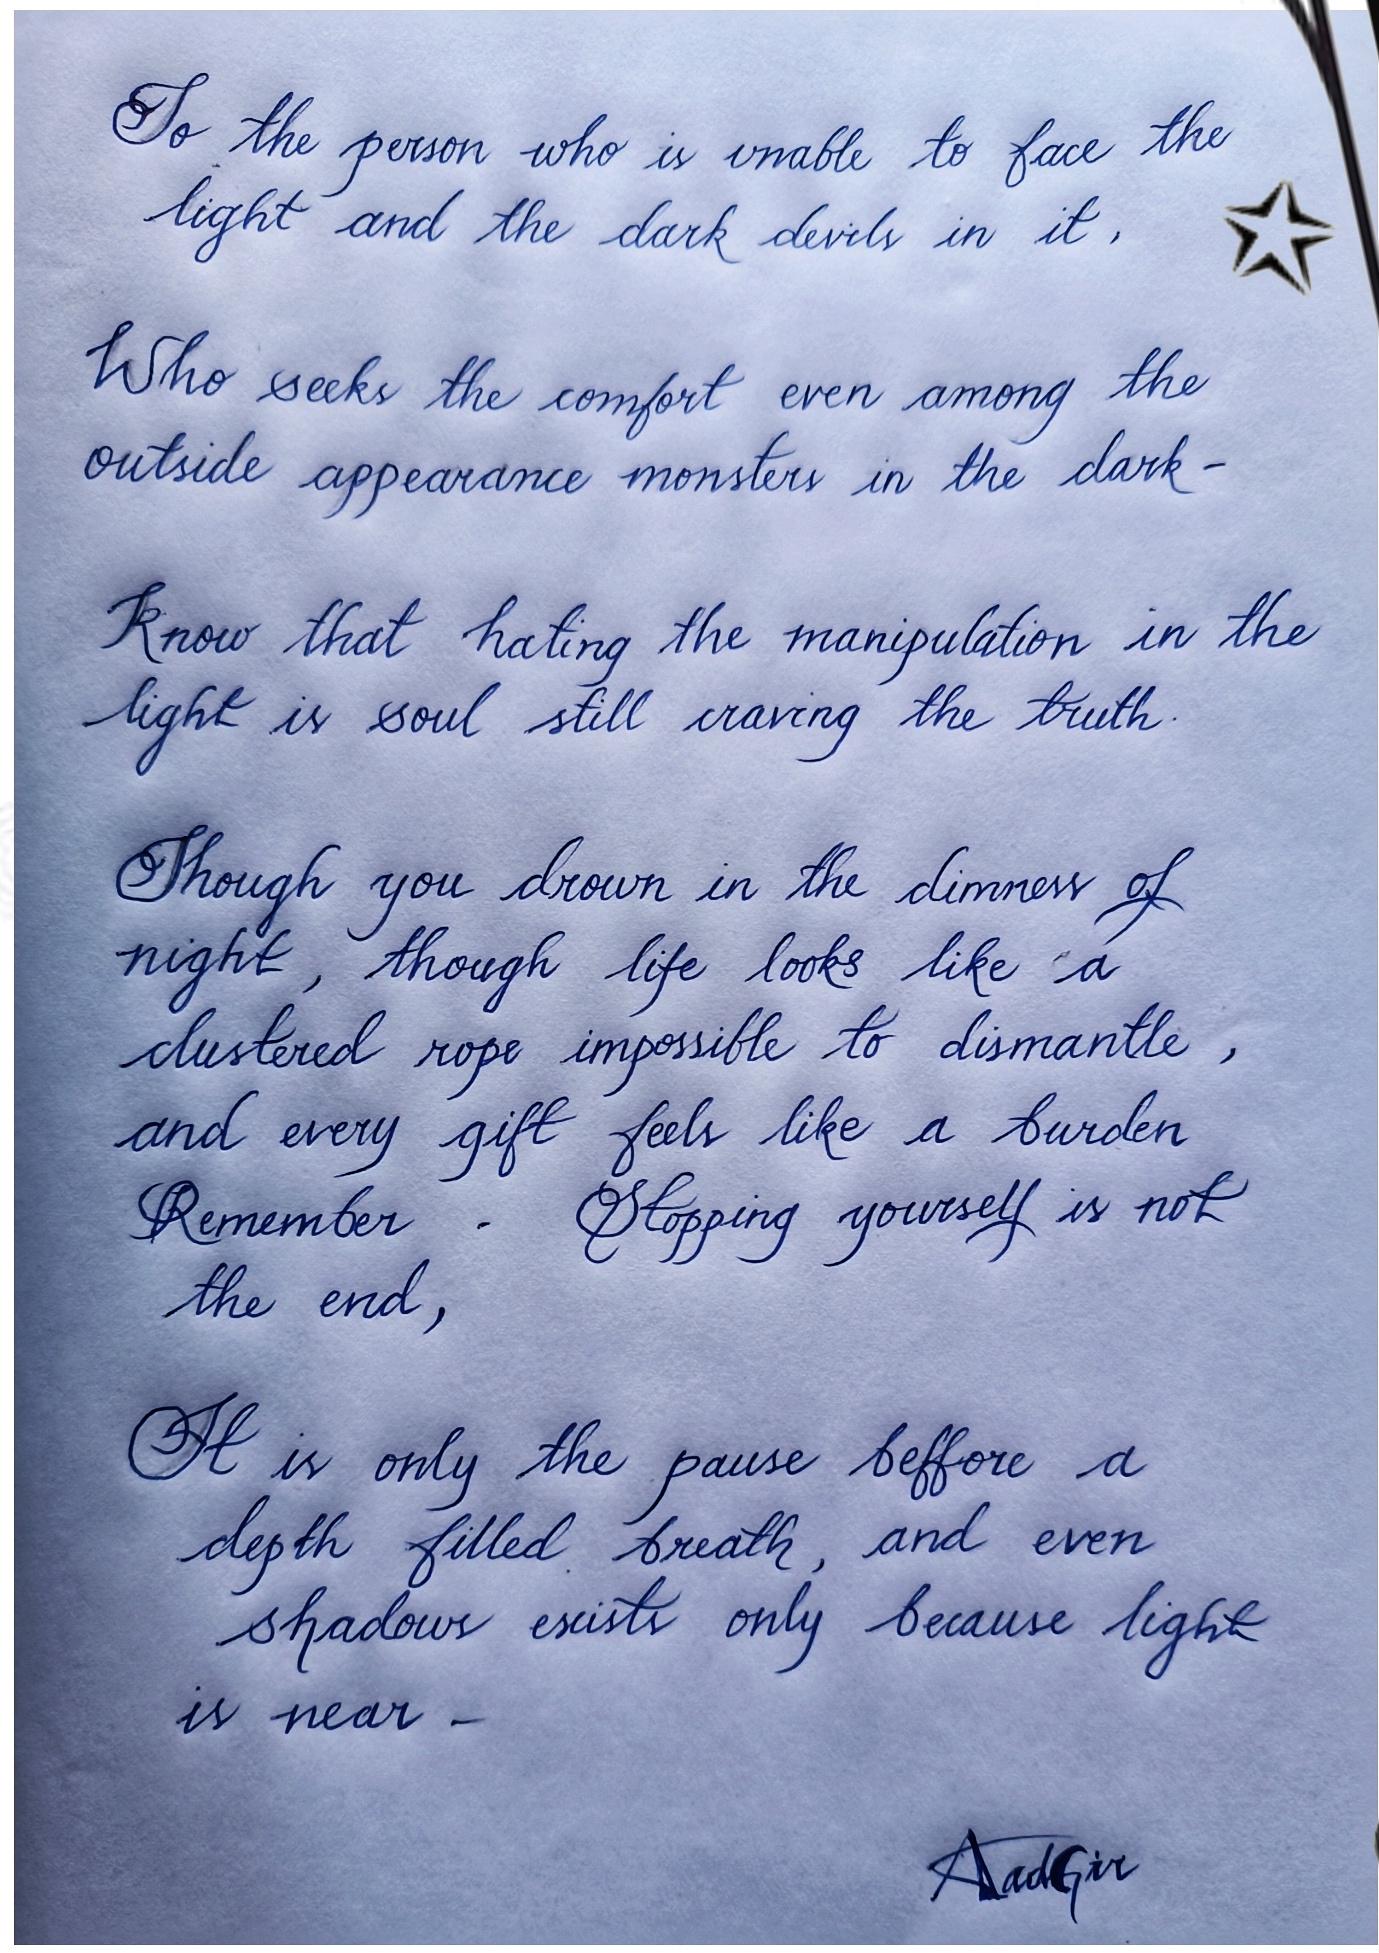 To the person who is unable to face the
light and the dark devils in it,
Who seeks the comfort even among the
outside appearance monsters in the dark-
Know that hating the manipulation in the
light is soul still craving the truth.
Though you drown in the dimness of
night, though life looks like a
clustered rope impossible to dismantle,
and every gift feels like a burden
Remember - Stopping yourself is not
the end,
It is only the pause beffore a
depth filled breath, and even
shadows exists only because light
is near -
AadGir